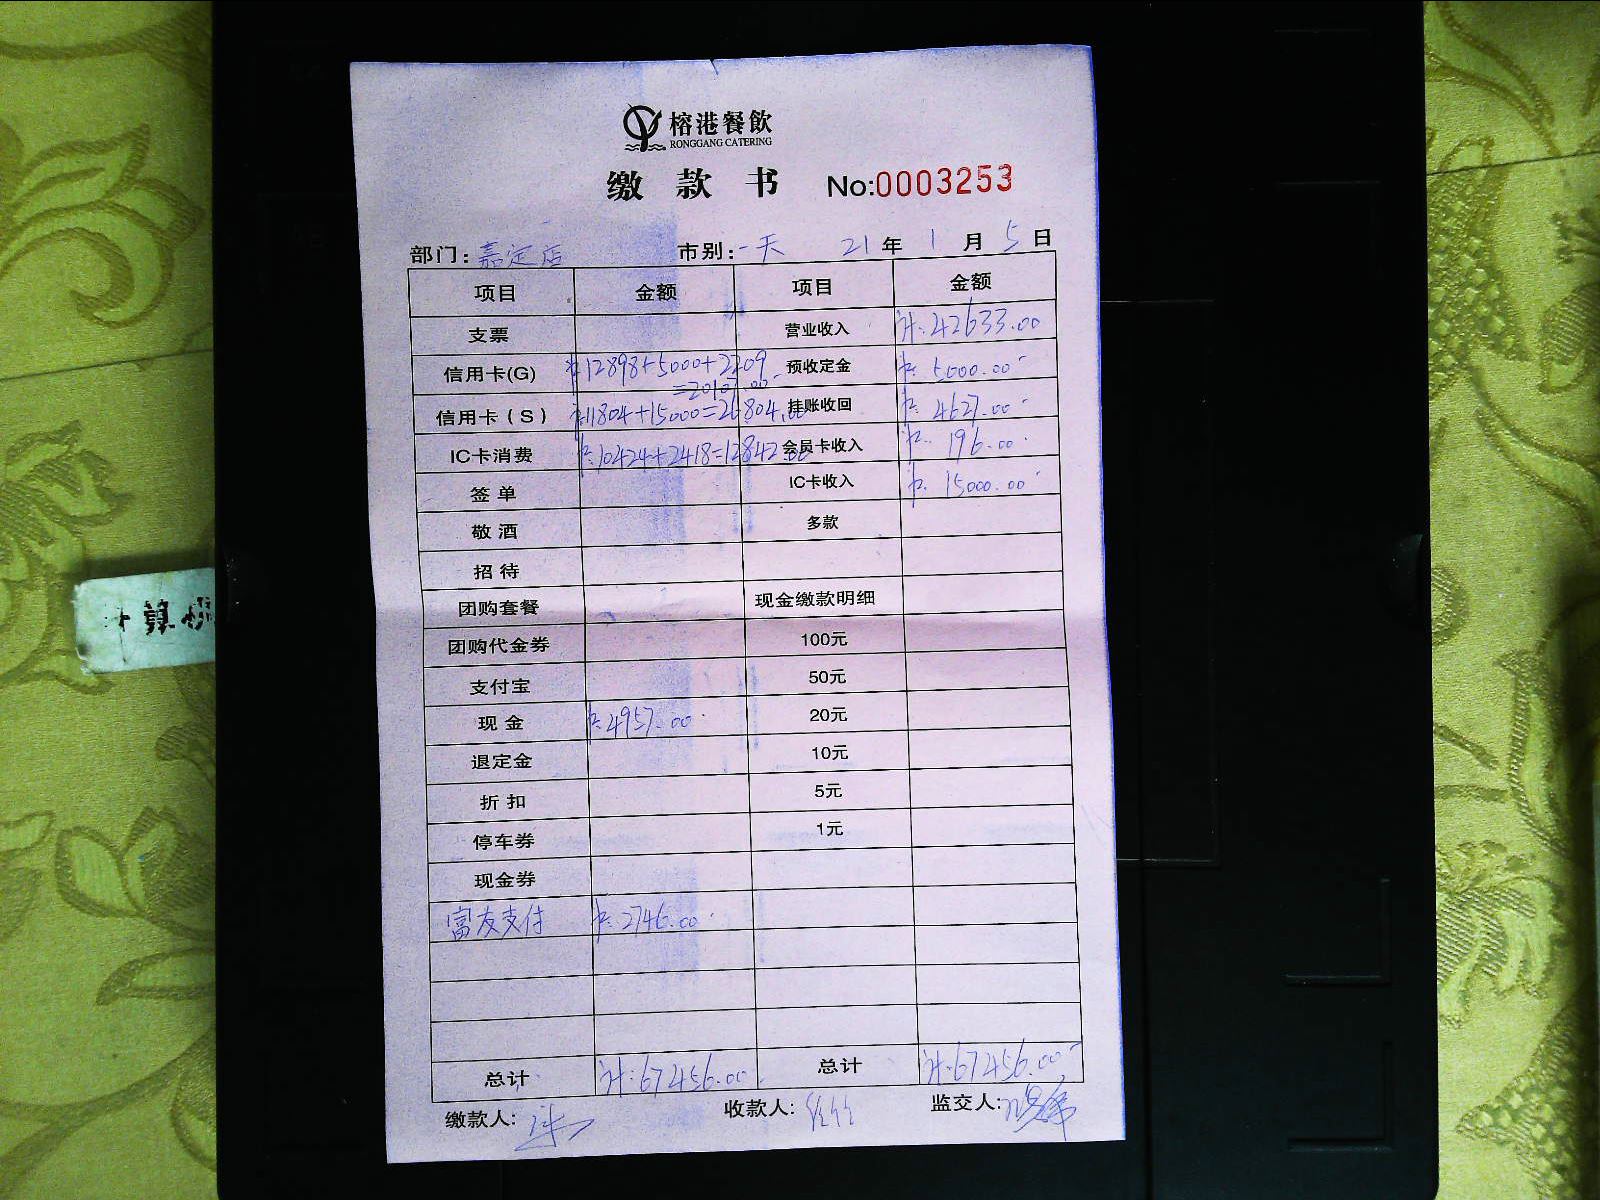 榕港餐飲
RONGGANG CATERING
缴款书 No:0003253
部门: 嘉定店 市别: 一天 21年1月5日
项目 金额 项目 金额
支票 营业收入 计:42633.00
信用卡(G) 12898+5000+2209 预收定金 5000.00
=20107.00
信用卡(S) 11804+15000=26804.00 挂账收回 4627.00
IC卡消费 10424+2418=12842.00 会员卡收入 196.00
签单 IC卡收入 15000.00
敬酒 多款
招待
团购套餐 现金缴款明细
团购代金券 100元
支付宝 50元
现金 4957.00 20元
退定金 10元
折扣 5元
停车券 1元
现金券
富友支付 2746.00
总计 计:67456.00 总计 计:67456.00
缴款人: 收款人: 监交人: